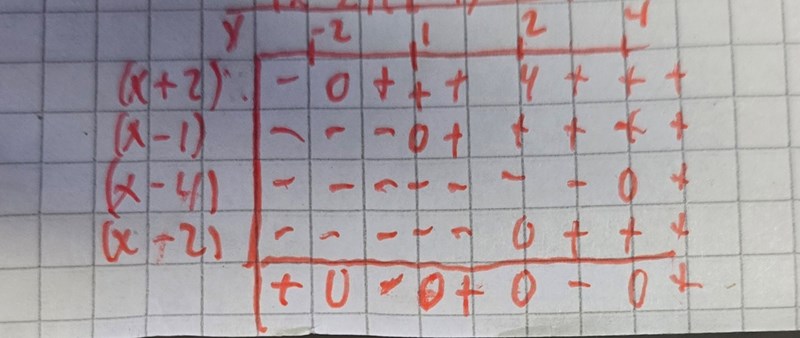 x -2 1 2 4
(x+2) - 0 + + + 4 + + +
(x-1) - - - 0 + + + + +
(x-4) - - - - - - - 0 +
(x-2) - - - - - 0 + + +
+ 0 - 0 + 0 - 0 +